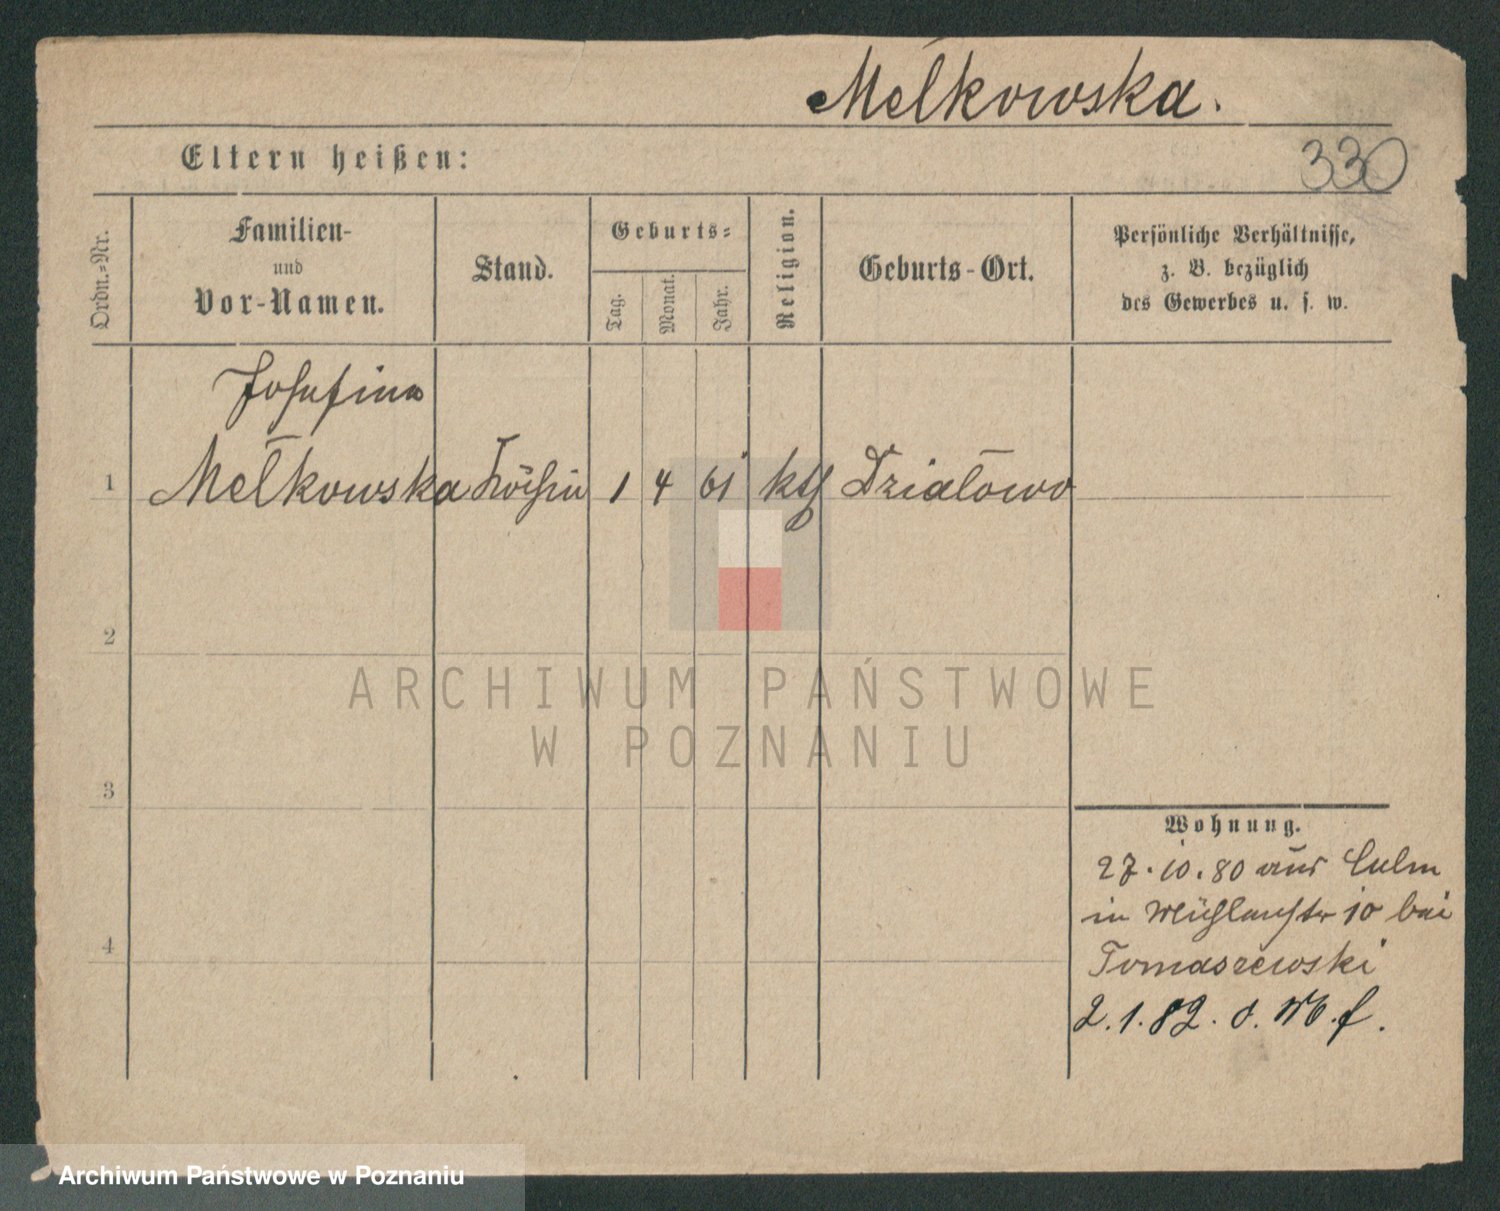 Mełkowska.
Eltern heißen:
330
Ordn.-Nr.
Familien-
und
Vor-Namen.
Stand.
Geburts-
Tag.
Monat.
Jahr.
Religion.
Geburts-Ort.
Persönliche Verhältnisse,
z. B. bezüglich
des Gewerbes u. s. w.
Josefina
1 Mełkowska Köchin 1 4 61 kth Działowo
2
3
4
Wohnung.
27.10.80 aus Culm
in Mühlenstr 10 bei
Tomaszewski
2.1.82.
ARCHIWUM PAŃSTWOWE
W POZNANIU
Archiwum Państwowe w Poznaniu